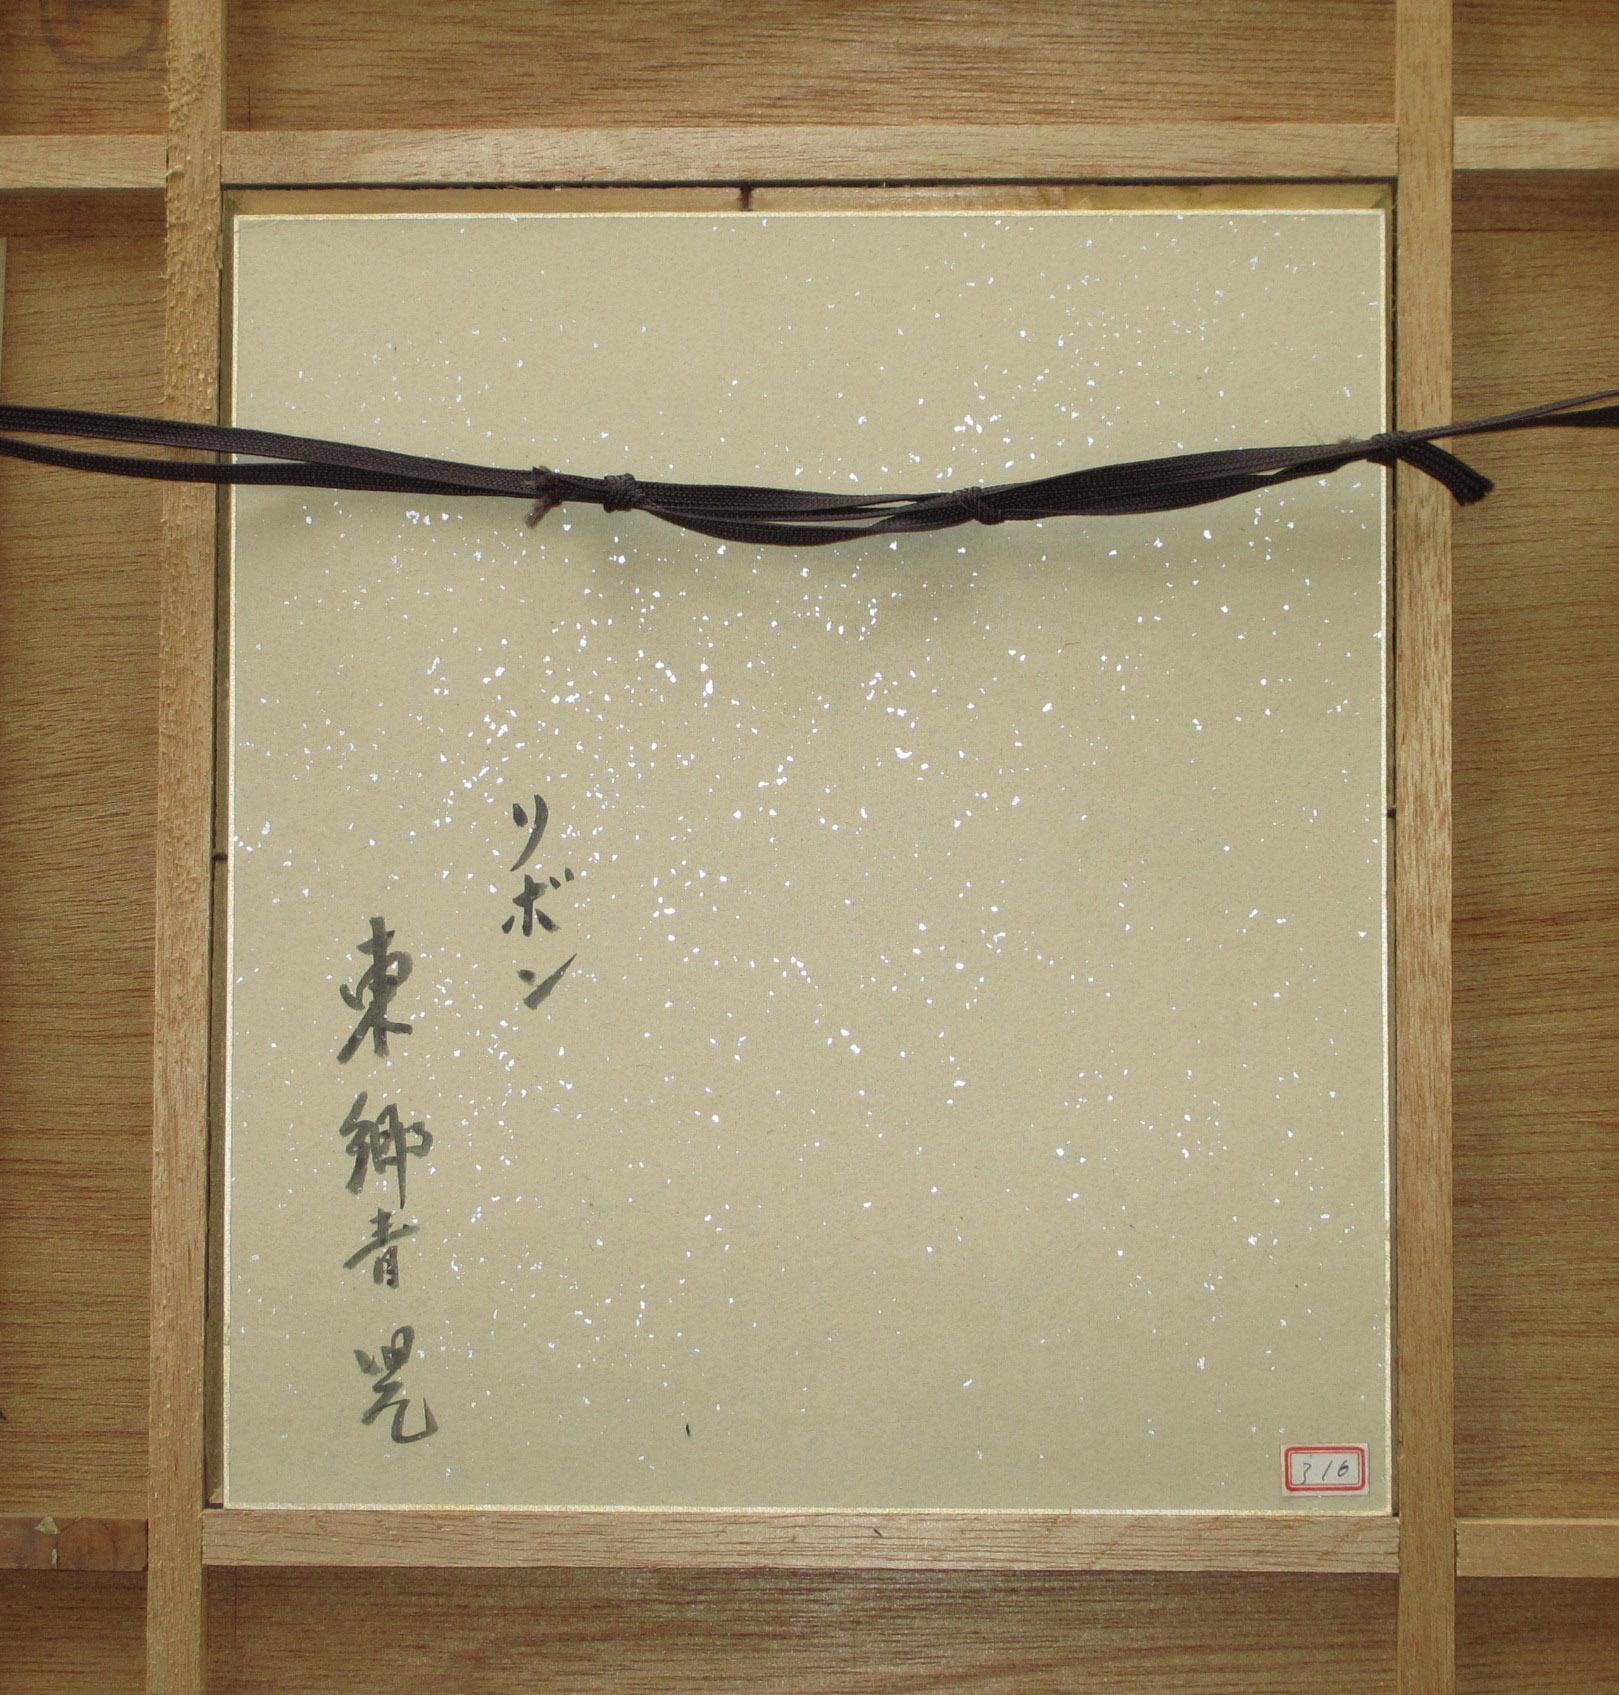 リボン
東郷青児
316